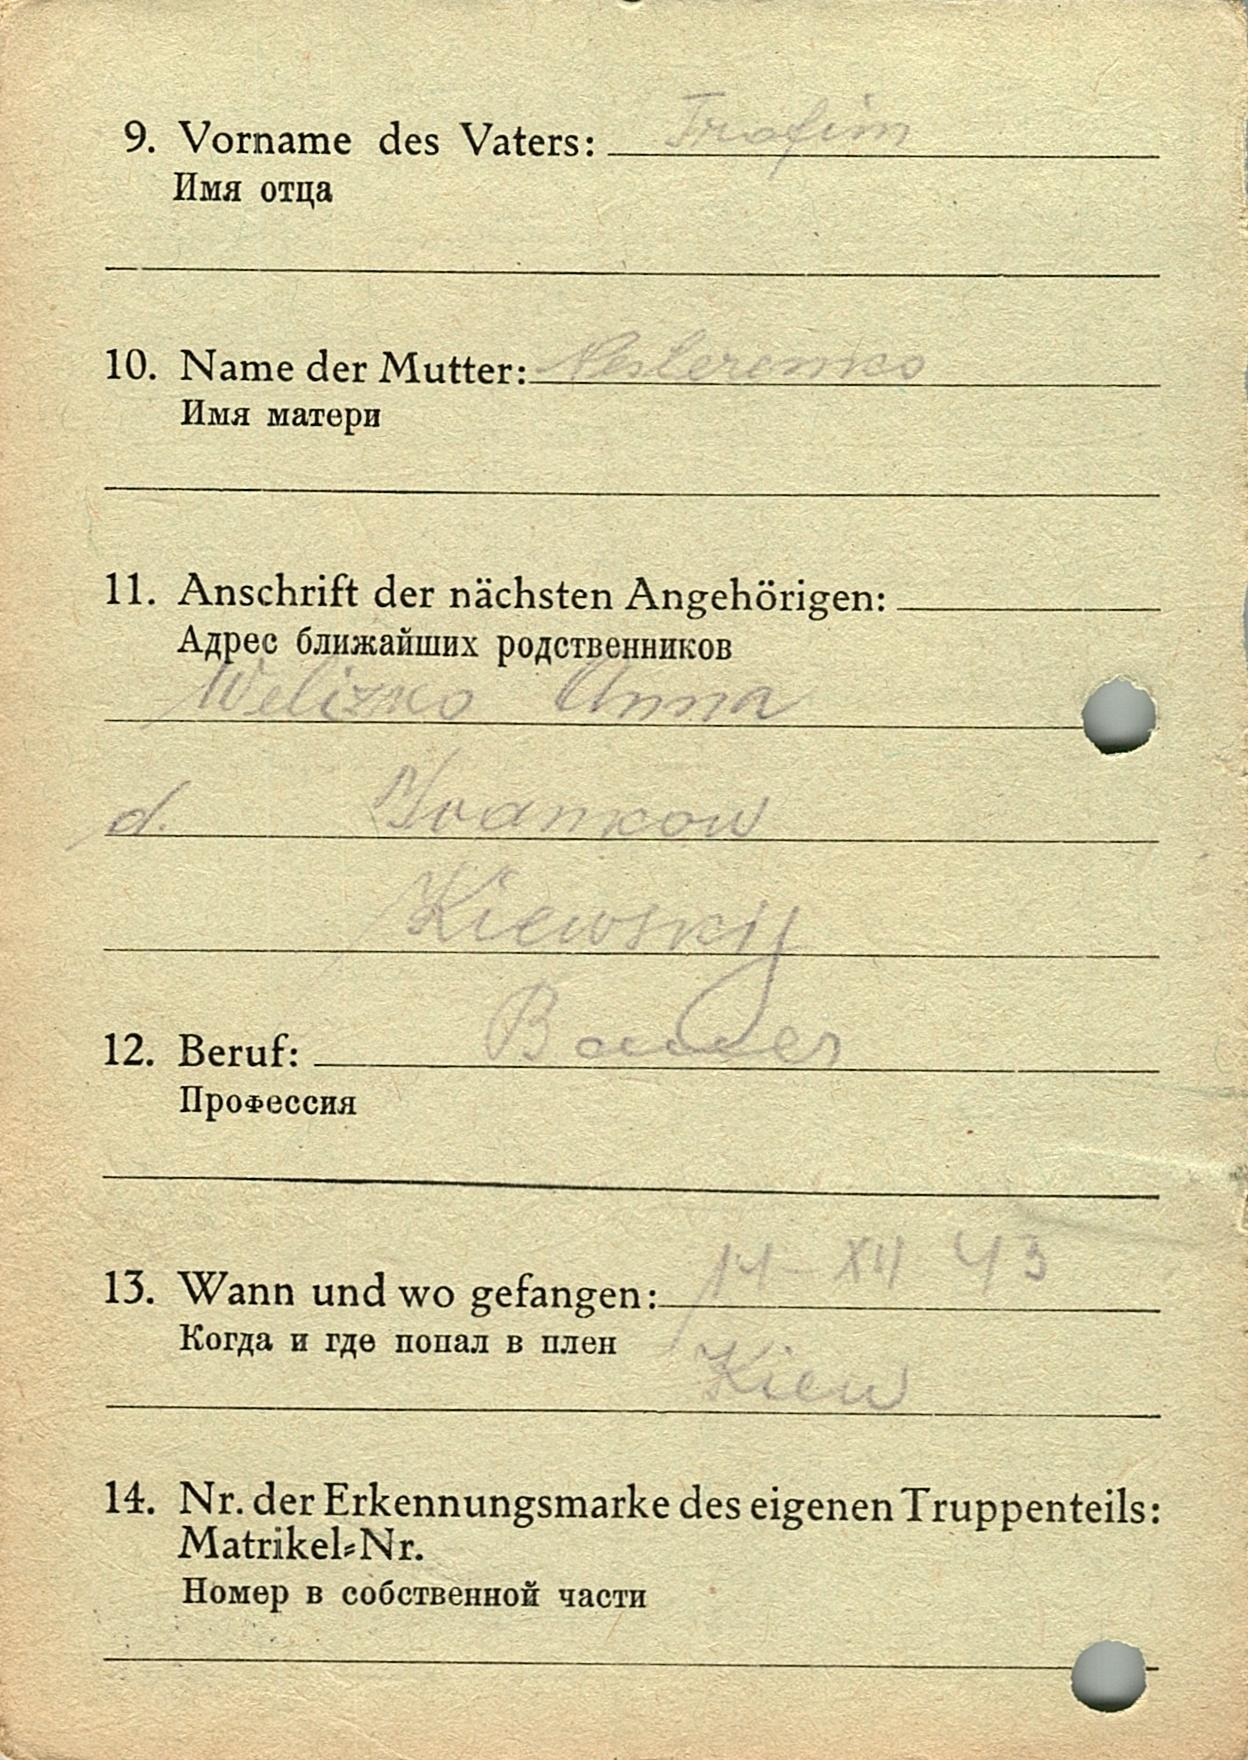 9. Vorname des Vaters: Trofim
Имя отца
10. Name der Mutter: Nesterenko
Имя матери
11. Anschrift der nächsten Angehörigen:
Адрес ближайших родственников
Welizko Anna
d. Ivankow
Kiewskij
12. Beruf: Bauer
Профессия
13. Wann und wo gefangen: 14-XII 43
Когда и где попал в плен
Kiew
14. Nr. der Erkennungsmarke des eigenen Truppenteils:
Matrikel-Nr.
Номер в собственной части